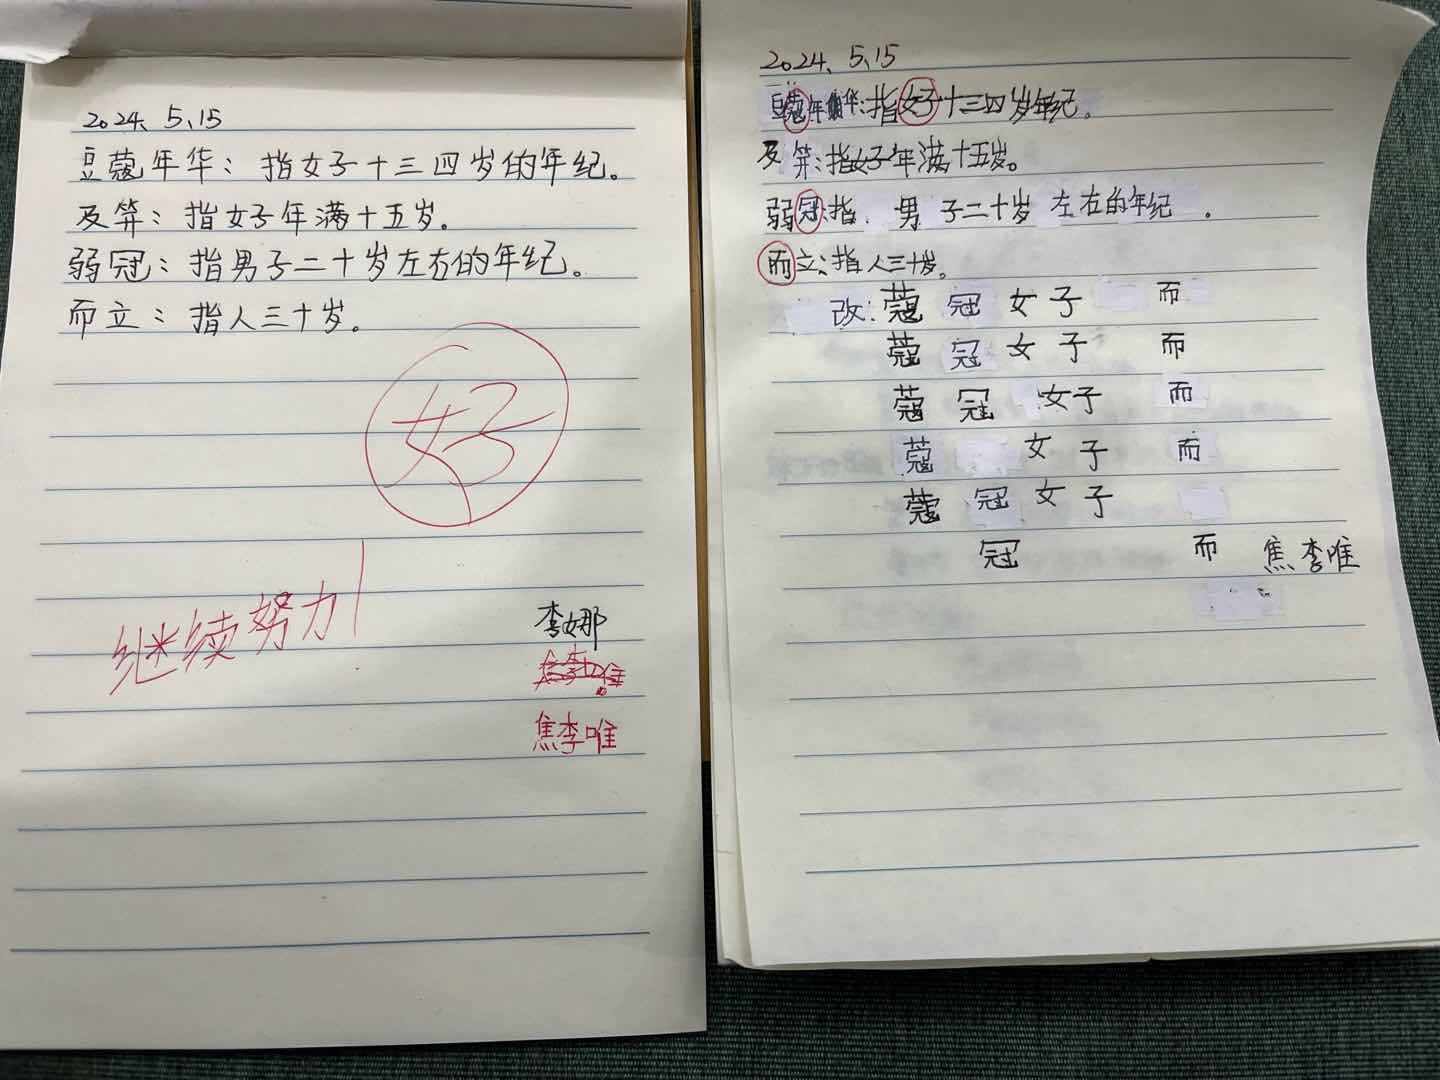 2024、5、15
豆蔻年华：指女子十三四岁的年纪。
及笄：指女子年满十五岁。
弱冠：指男子二十岁左右的年纪。
而立：指人三十岁。
好
继续努力
李娜
焦李唯
2024、5、15
豆蔻年华：指女子十三四岁年纪。
及笄：指女子年满十五岁。
弱冠：指男子二十岁左右的年纪。
而立：指人三十岁。
改：蔻 冠 女子 而
蔻 冠 女子 而
蔻 冠 女子 而
蔻 女子 而
蔻 冠 女子
冠 而 焦李唯